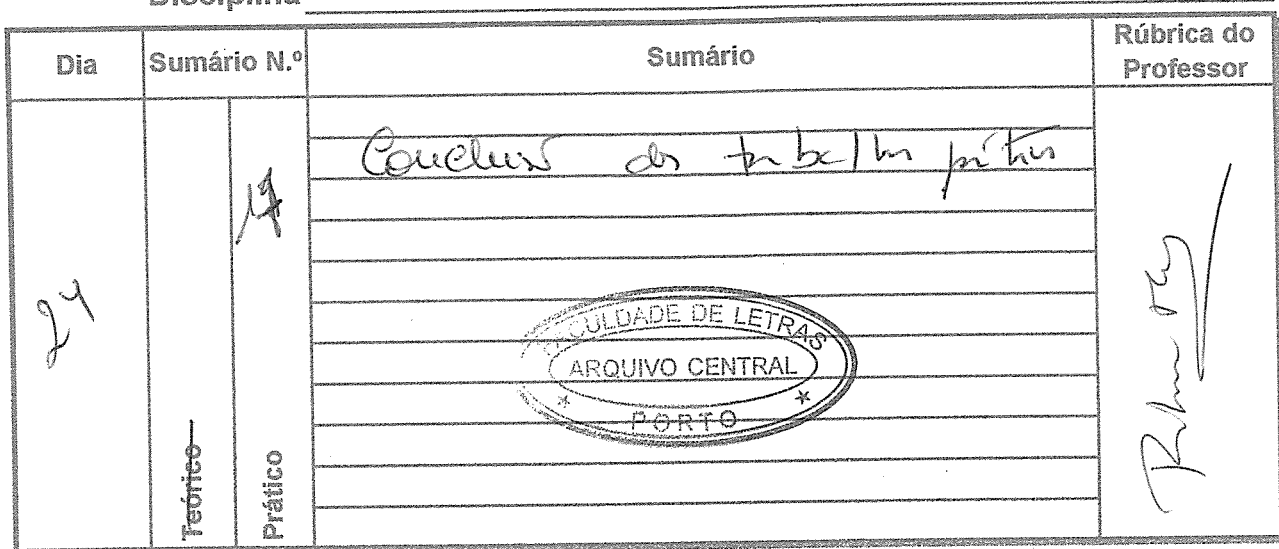 Disciplina
Dia
Sumário N.º
Sumário
Rúbrica do
Professor
24
Teórico
Prático
17
Conclusão dos trabalhos práticos
FACULDADE DE LETRAS
ARQUIVO CENTRAL
* PORTO *